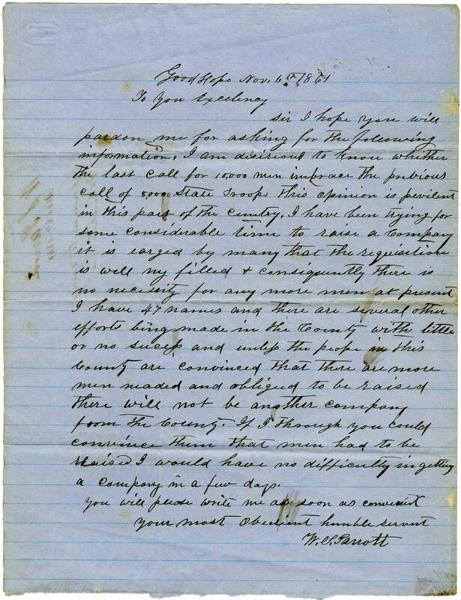 Good Hope Nov. 6th 1861
To You Excelency
Sir I hope you will
pardon me for asking for the following
information, I am desirous to know whether
the last call for 10,000 men imbrace the previous
call of 5000 State Troops this opinion is pevilent
in this part of the cuntry, I have been trying for
some considirable time to raise a Company
it is earged by many that the requisition
is well ny filled & consequently there is
no necessity for any more men at present
I have 47 names and there are several other
efforts being made in the County with little
or no sucess and unless the pople in this
County are convinced that there are more
men neaded and obliged to be raised
there will not be another company
form the County. If I through you could
convince them that men had to be
raised I would have no difficulty in getting
a company in a few days.
You will please write me as soon as
your most Obedient humble servent
W. C. Parrott